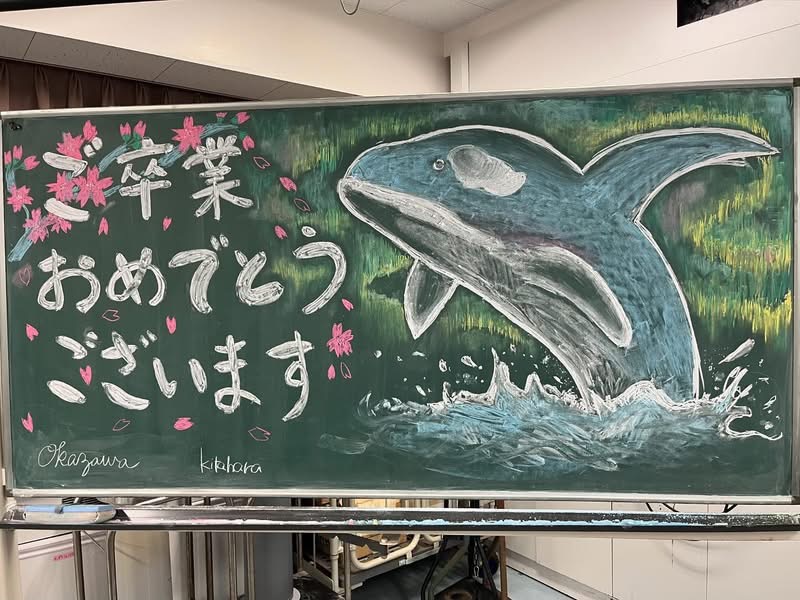 ご卒業
おめでとう
ございます
Okazawa
kitahara